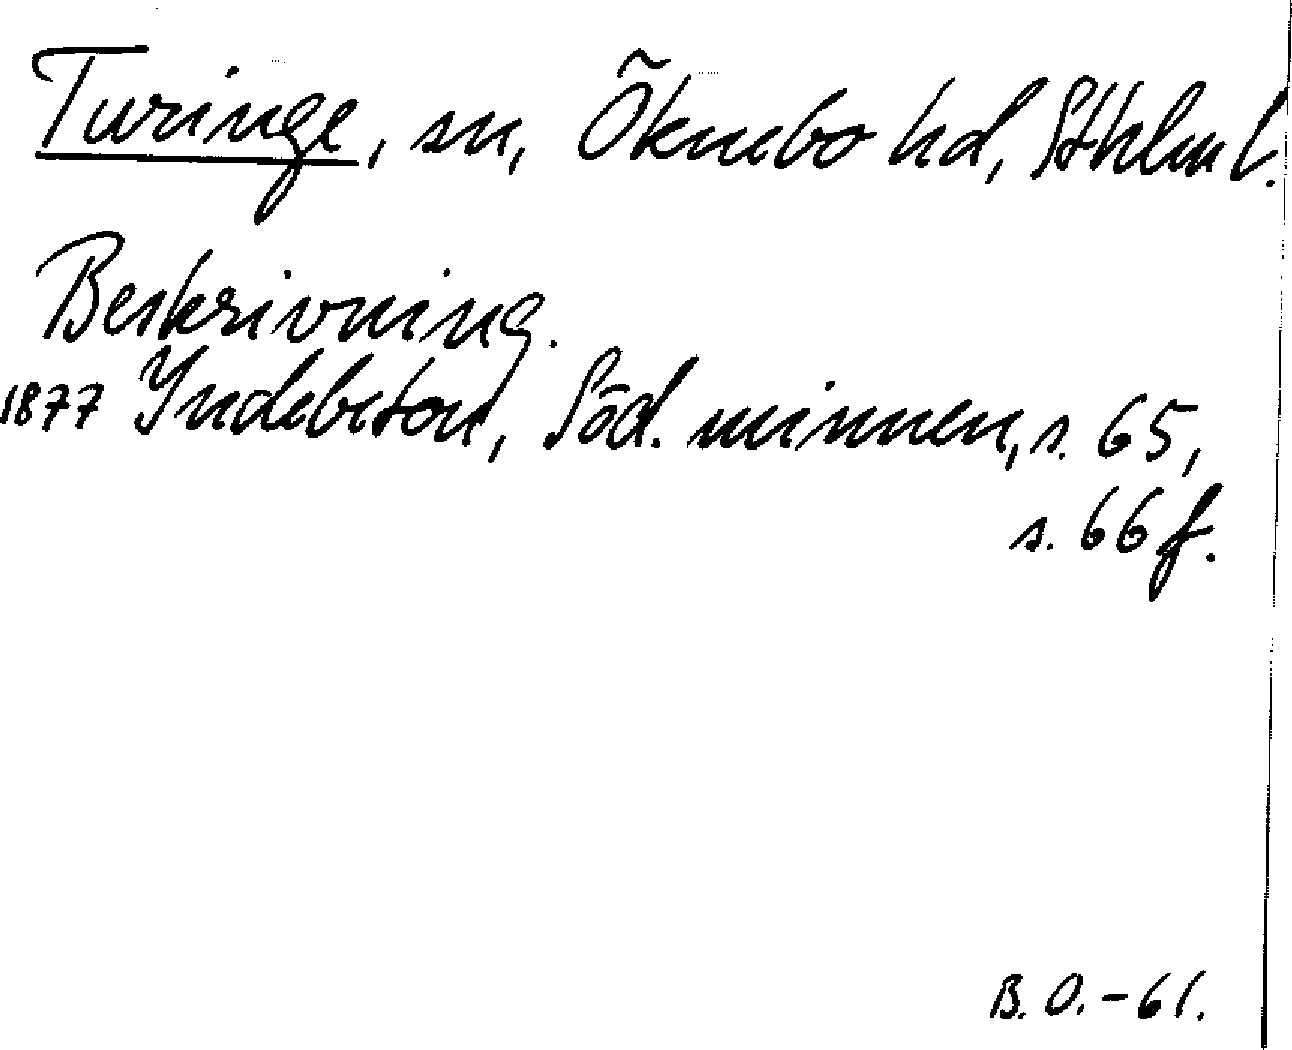 Turinge, sn, Öknebo hd, Sthlm l.
Beskrivning.
1877 Indebetou, Söd. minnen, s. 65,
s. 66 f.
B. O. - 61.